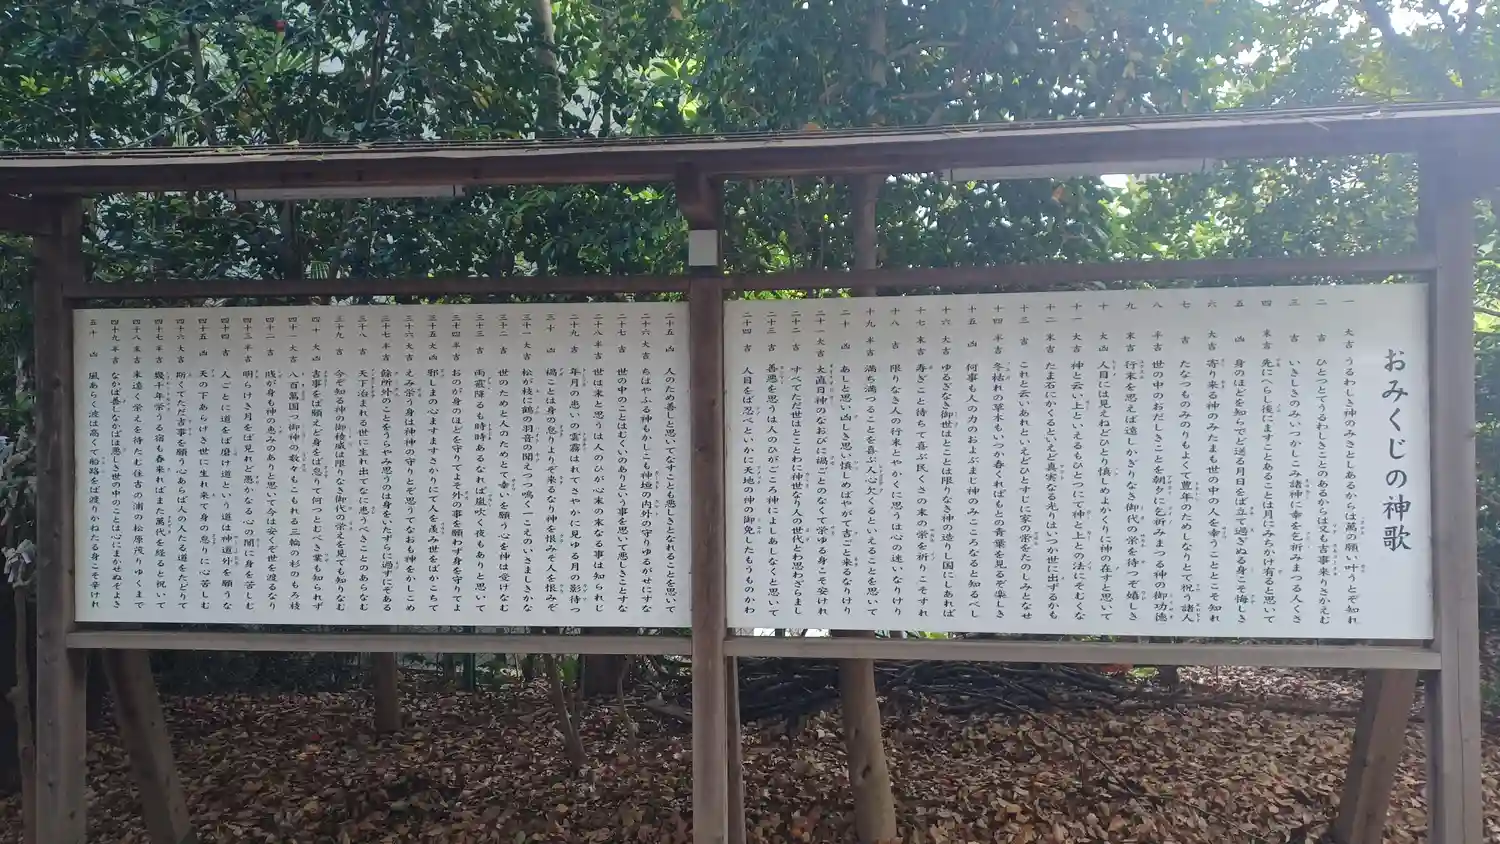 おみくじの神歌
一 大吉 うるわしき神のみさとしあるからは萬の願い叶うとぞ知れ
二 吉 ひとつとてうるわしきことのあるからは又も吉事来りさかえむ
三 吉 いさしきのみいつかしこみ諸神に幸を乞祈みまつる人くさ
四 末吉 先にへらし後にますことあることは月にみちかけ有ると思いて
五 凶 身のほどを知らでど送る月日をば立て過ぎぬる身こそ悔しき
六 大吉 寄り来る神のみたまも世の中の人を幸うこととこそ知れ
七 吉 たなつものみのりもよくて豊年のためしなりとて祝う諸人
八 半吉 世の中のおだしきことを朝夕に乞祈みまつる神の御功徳
九 末吉 行末を思えば遠しかぎりなき御代の栄を待つぞ嬉しき
十 大凶 人目には見えねどひとり慎しめよかくりに神の在すと思いて
十一 大吉 神と云い上といえるもひとつにて神と上との法にそむくな
十二 末吉 たま石にかくるといえど真実なる光りはいつか世に出ずるかも
十三 吉 これと云いあれといえどひとすじに家の栄をたのしみとなせ
十四 半吉 冬枯れの草木もいつか春くればもとの青葉を見るぞ楽しき
十五 凶 何事も人の力のおよぶまじ神のみこころなると知るべし
十六 大吉 ゆるぎなき御世はとことは限りなき神の造りし国にしあれば
十七 末吉 寿ぎごと待ちて喜ぶ民くさの末の末の栄を祈りこそすれ
十八 吉 限りなき人の行末とやかくに思うは心の迷いなりけり
十九 吉 満ち満つることを喜ぶ人心欠くるといえることを思いて
二十 凶 あしと思い凶しき思い慎しめばやがて吉ごと来るなりけり
二十一 大吉 大直日神のなおびに禍ごとのなくて栄ゆる身こそ安けれ
二十二 吉 すべてただ世はとことわに神世なり人の世代とわ思わざらまし
二十三 吉 善悪を思うは人のひがごころ神によしあしなくと思いて
二十四 吉 人目をば忍べといかに天地の神の御免したもうものかわ
二十五 凶 人のため善しと思いてなすことも悪しきとなれることを思いて
二十六 大吉 ちはやふる神もかしこも神垣の内外の守りゆるがせにすな
二十七 吉 世の中のことはむくいのありという事を思いて悪しきことすな
二十八 半吉 世は末と思うは人のひが心末の末なる事は知られじ
二十九 吉 年月の思いの雲霧はれてさやかに見ゆる月の影待つ
三十 凶 禍ことは身の怠りよりぞ来るなり神を恨みそ人を恨みぞ
三十一 大吉 松が枝に鶴の羽音の聞えつつ鳴く一こえのいさましきかな
三十二 吉 世のためと人のためとて幸いを願う心を神は受けなむ
三十三 吉 雨霰降るも時時あるなれば嵐吹く夜もありと思いて
三十四 半吉 おのが身のほどを守りてよそ外の事を願わず身を守りてよ
三十五 大凶 邪しまの心ますますさかりにて人をなみ世をばかこちて
三十六 大吉 えみ栄う身は神神の守りとぞ思うてなおも神をかしこめ
三十七 半吉 餘所外のことをうらやみ思うのは身をいたずらに過すにぞある
三十八 吉 天下泊まれる世に生れ出てなに思うべきことのあらなむ
三十九 吉 今ぞ知る神の御稜威は限りなき御代の栄えを見ても知りなむ
四十 大凶 吉事をば願えと身をば怠りて何つとむべき業も知られず
四十一 大吉 八百萬国つ御神の数々もこもれる三輪の杉のもろ枝
四十二 吉 賎が身も神の恵みのありと思いて今は安くぞ世を渡るなり
四十三 半吉 明らけき月をば見れど愚かなる心の闇に身を苦しむ
四十四 吉 人ごとに道をば磨け道という道は神道外を願うな
四十五 凶 天の下あらけき世に生れ来て身の怠りに心苦しむ
四十六 大吉 斯くてただ吉事を願う心あらば人の人たる道をたどりて
四十七 半吉 幾千年栄うる宿も春来ればまた萬代を経ると祝いて
四十八 末吉 末遠く栄えを待たむ住吉の浦の松原茂りゆくまで
四十九 半吉 なかば善しなかばは悪しき世の中のことは心にまかせぬぞよき
五十 凶 風あらく波は高くて船路をば渡りかねたる身こそ辛けれ